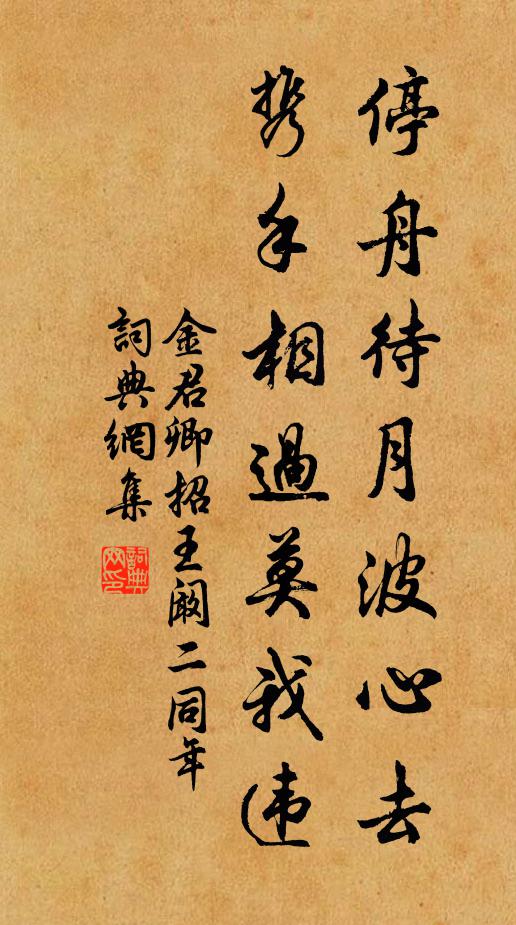 停舟待月波心去
携手相過莫我违
金君卿招王阚二同年
詞典網集
詞典網印